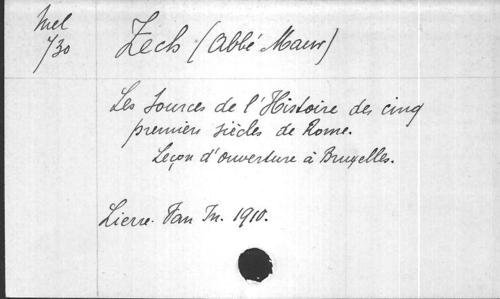 Mel
730
Zech (Abbé Maur)
Les Sources de l'Histoire des cinq
premiers siècles de Rome.
Leçon d'ouverture à Bruxelles.
Lierre. Van In. 1910.